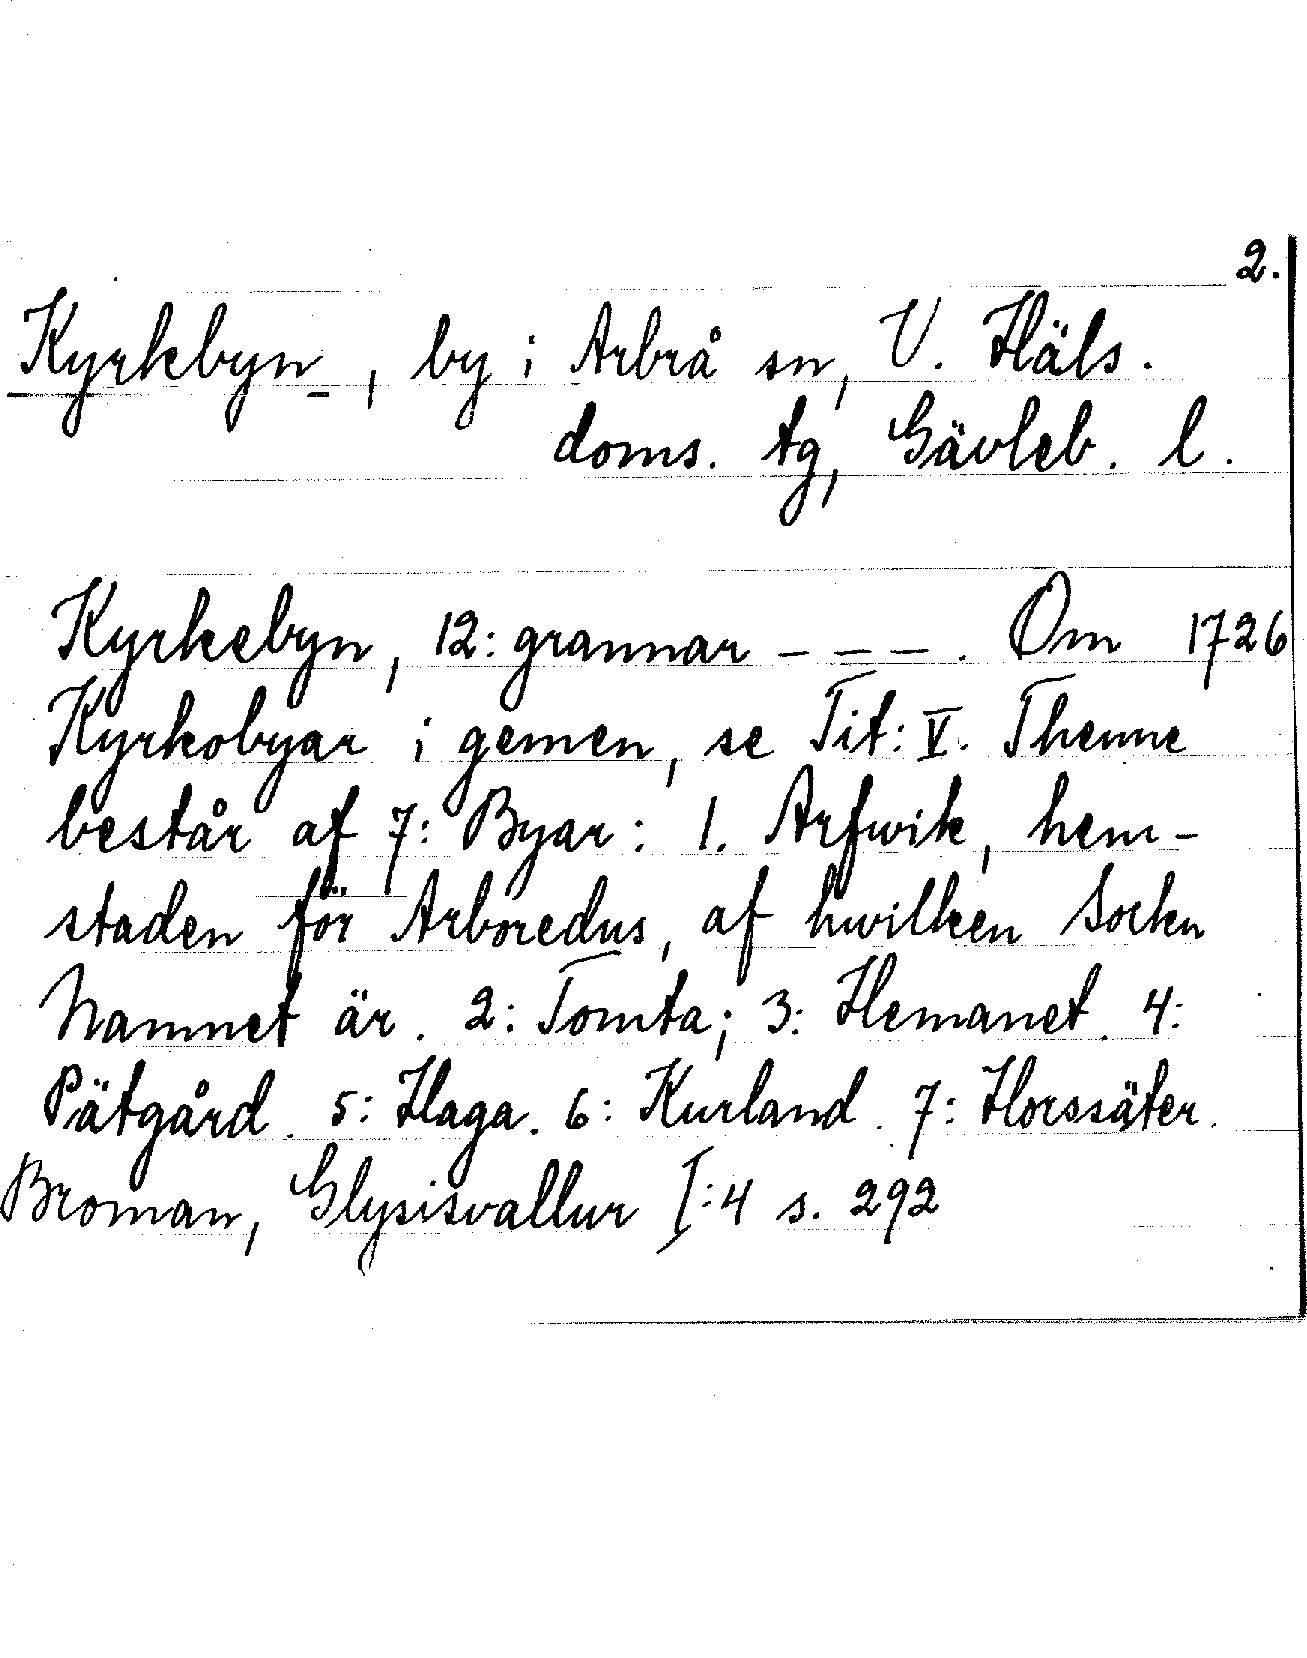 2.
Kyrkebyn, by i Arbrå sn, V. Häls.
doms. tg, Gävleb. l.
Kyrkebyn, 12: grannar - - - . Om 1726
Kyrkobyar i gemen, se Tit: V. Thenne
består af 7: Byar: 1. Arfwik, hem-
staden för Arboredus, af hwilken Sockn
Namnet är. 2: Tomta; 3: Hemanet. 4:
Pätgård. 5: Haga. 6: Kurland. 7: Horssäter.
Broman, Glysisvallur I:4 s. 292